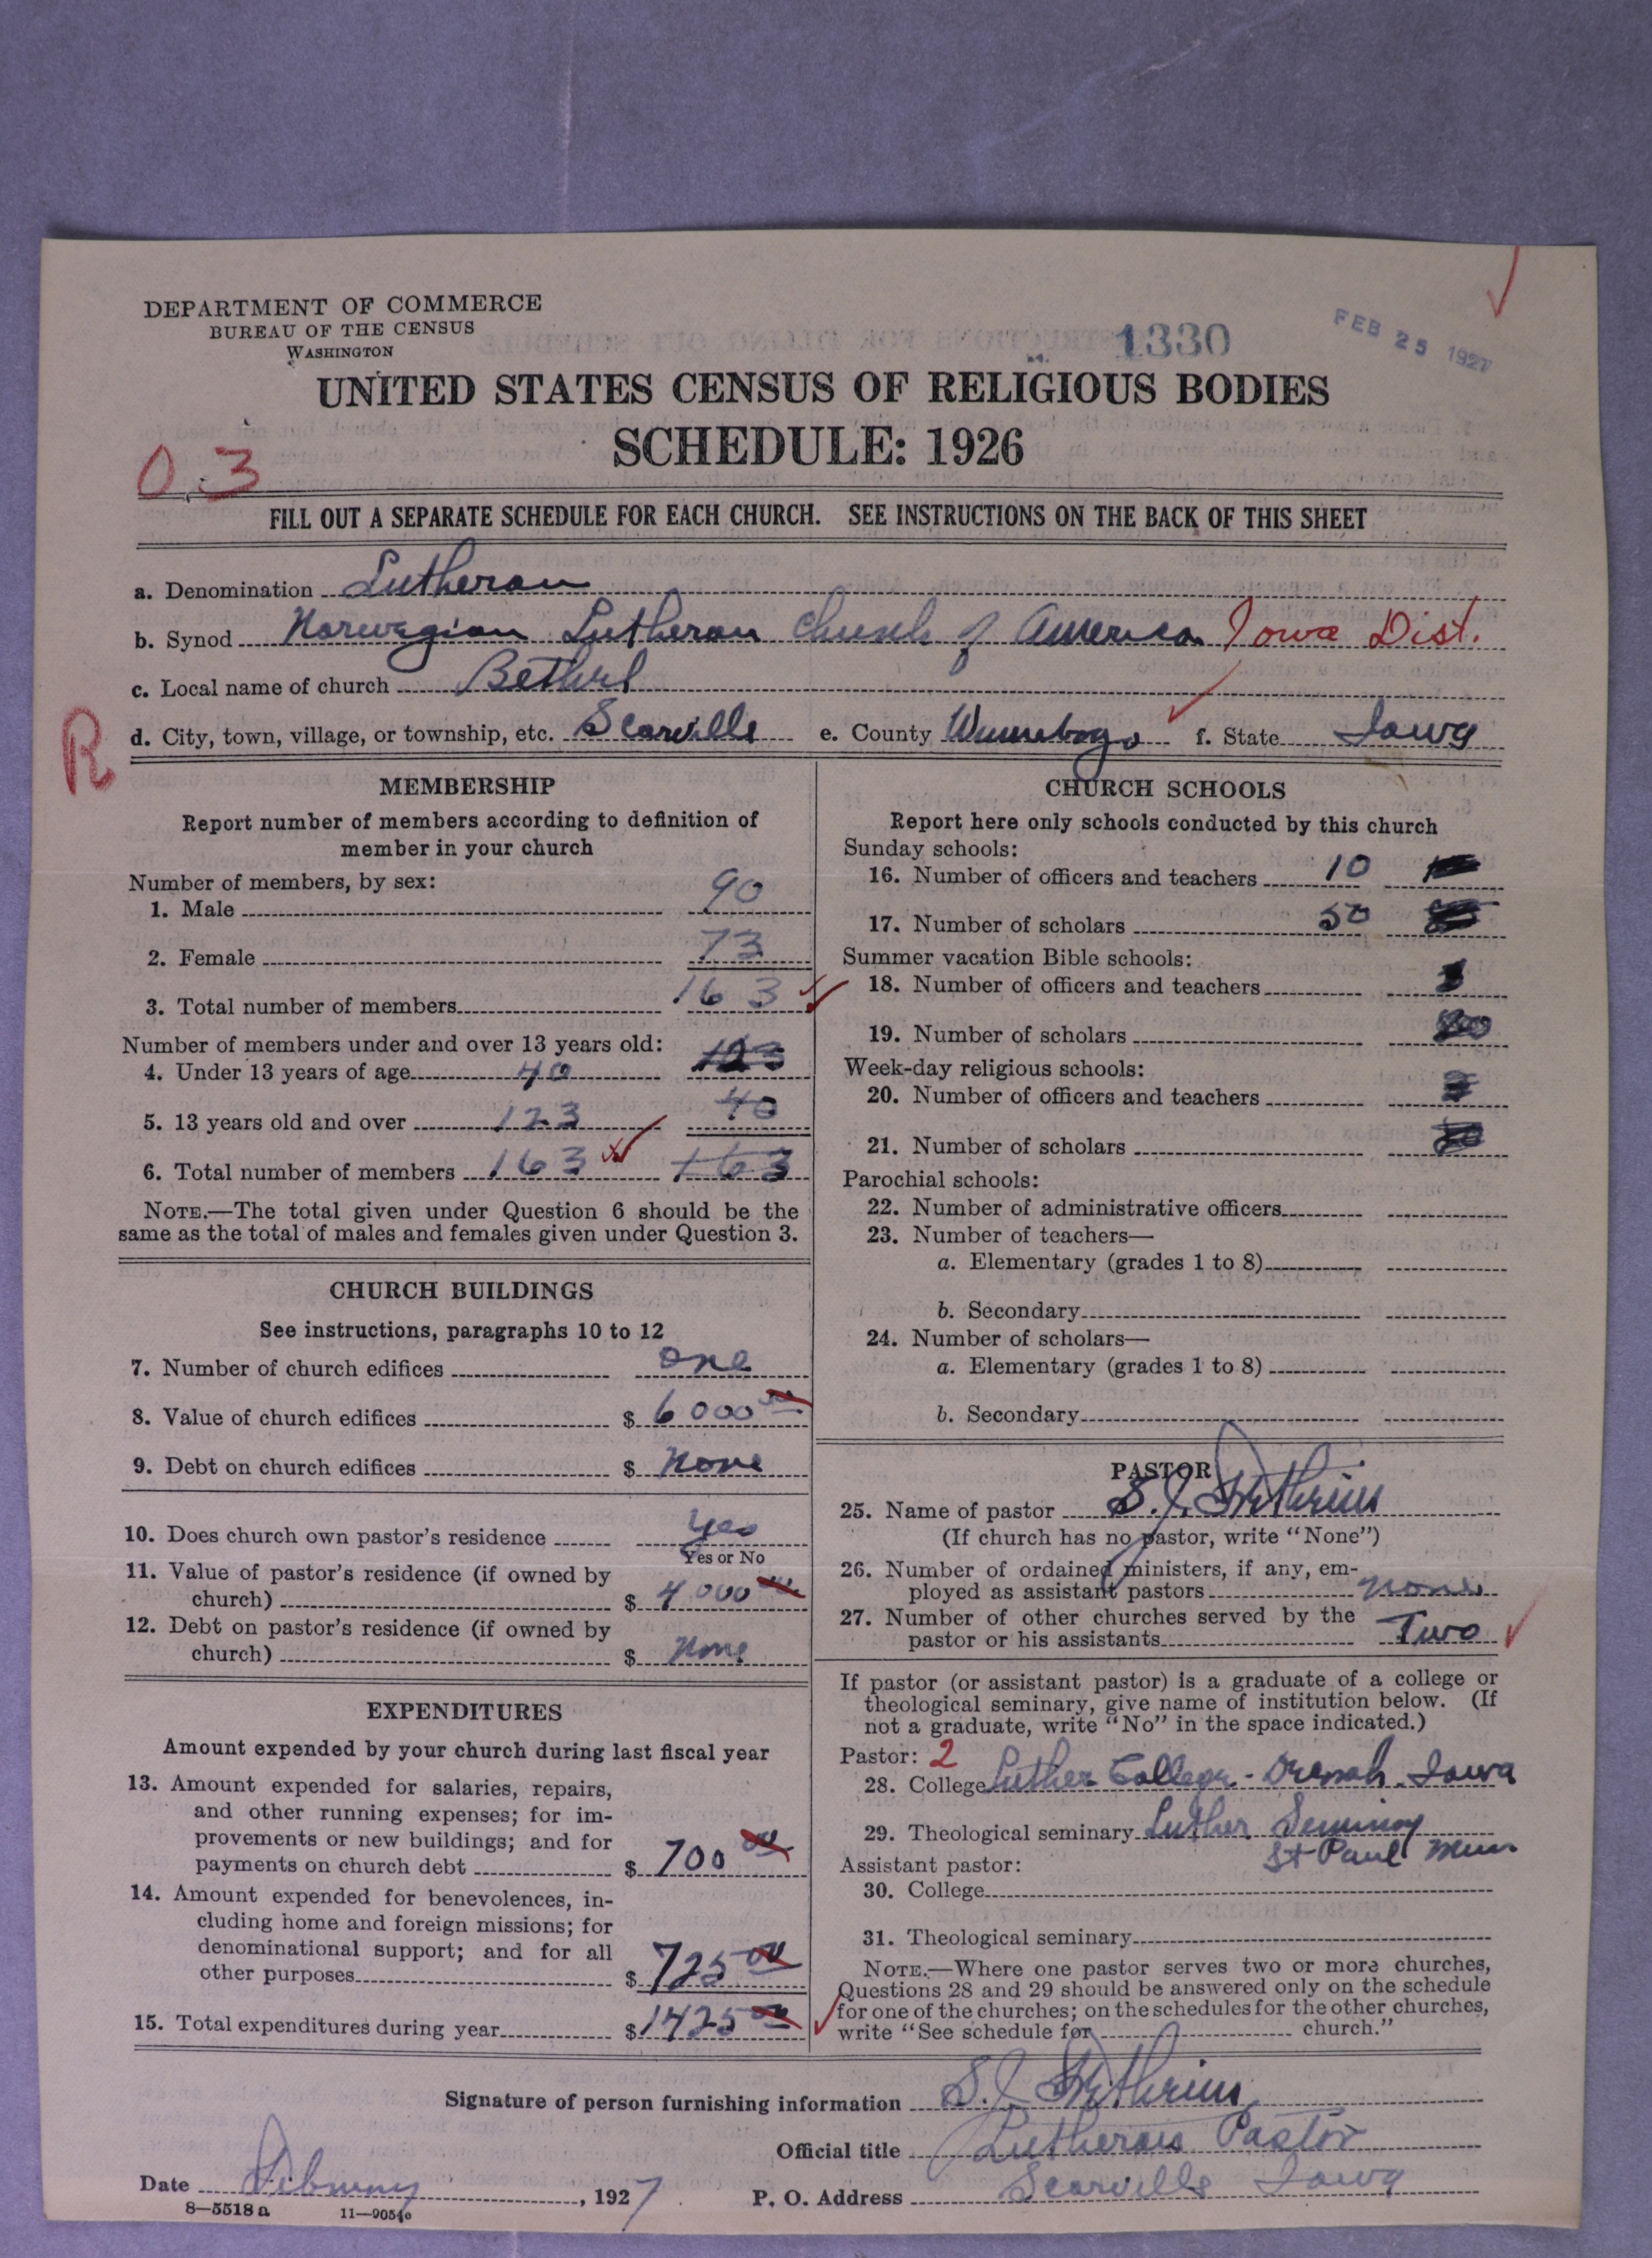 DEPARTMENT OF COMMERCE
BUREAU OF THE CENSUS
WASHINGTON
1330
FEB 25 1927
UNITED STATES CENSUS OF RELIGIOUS BODIES
SCHEDULE: 1926
03
FILL OUT A SEPARATE SCHEDULE FOR EACH CHURCH. SEE INSTRUCTIONS ON THE BACK OF THIS SHEET
a. Denomination Lutheran
b. Synod Norwegian Lutheran Church of America Iowa Dist.
c. Local name of church Bethel
R
d. City, town, village, or township, etc. Scarville e. County Winnebago f. State Iowa
MEMBERSHIP
Report number of members according to definition of
member in your church
Number of members, by sex:
1. Male 90
2. Female 73
3. Total number of members 163
Number of members under and over 13 years old:
4. Under 13 years of age 40 123
5. 13 years old and over 123 40
6. Total number of members 163 163
NOTE.—The total given under Question 6 should be the
same as the total of males and females given under Question 3.
CHURCH BUILDINGS
See instructions, paragraphs 10 to 12
7. Number of church edifices one
8. Value of church edifices $ 6000 00
9. Debt on church edifices $ None
10. Does church own pastor's residence yes
Yes or No
11. Value of pastor's residence (if owned by
church) $ 4000 00
12. Debt on pastor's residence (if owned by
church) $ None
EXPENDITURES
Amount expended by your church during last fiscal year
13. Amount expended for salaries, repairs,
and other running expenses; for im-
provements or new buildings; and for
payments on church debt $ 700 00
14. Amount expended for benevolences, in-
cluding home and foreign missions; for
denominational support; and for all
other purposes $ 725 00
15. Total expenditures during year $ 1425 00
CHURCH SCHOOLS
Report here only schools conducted by this church
Sunday schools:
16. Number of officers and teachers 10
17. Number of scholars 50
Summer vacation Bible schools:
18. Number of officers and teachers
19. Number of scholars
Week-day religious schools:
20. Number of officers and teachers
21. Number of scholars
Parochial schools:
22. Number of administrative officers
23. Number of teachers—
a. Elementary (grades 1 to 8)
b. Secondary
24. Number of scholars—
a. Elementary (grades 1 to 8)
b. Secondary
PASTOR
25. Name of pastor S. J.
(If church has no pastor, write "None")
26. Number of ordained ministers, if any, em-
ployed as assistant pastors none
27. Number of other churches served by the
pastor or his assistants Two
If pastor (or assistant pastor) is a graduate of a college or
theological seminary, give name of institution below. (If
not a graduate, write "No" in the space indicated.)
Pastor: 2
28. College Luther College - Decorah. Iowa
29. Theological seminary Luther Seminary
St Paul Minn
Assistant pastor:
30. College
31. Theological seminary
NOTE.—Where one pastor serves two or more churches,
Questions 28 and 29 should be answered only on the schedule
for one of the churches; on the schedules for the other churches,
write "See schedule for church."
Signature of person furnishing information S. J.
Official title Lutheran Pastor
Date February, 1927 P. O. Address Scarville Iowa
8—5518 a 11—9054